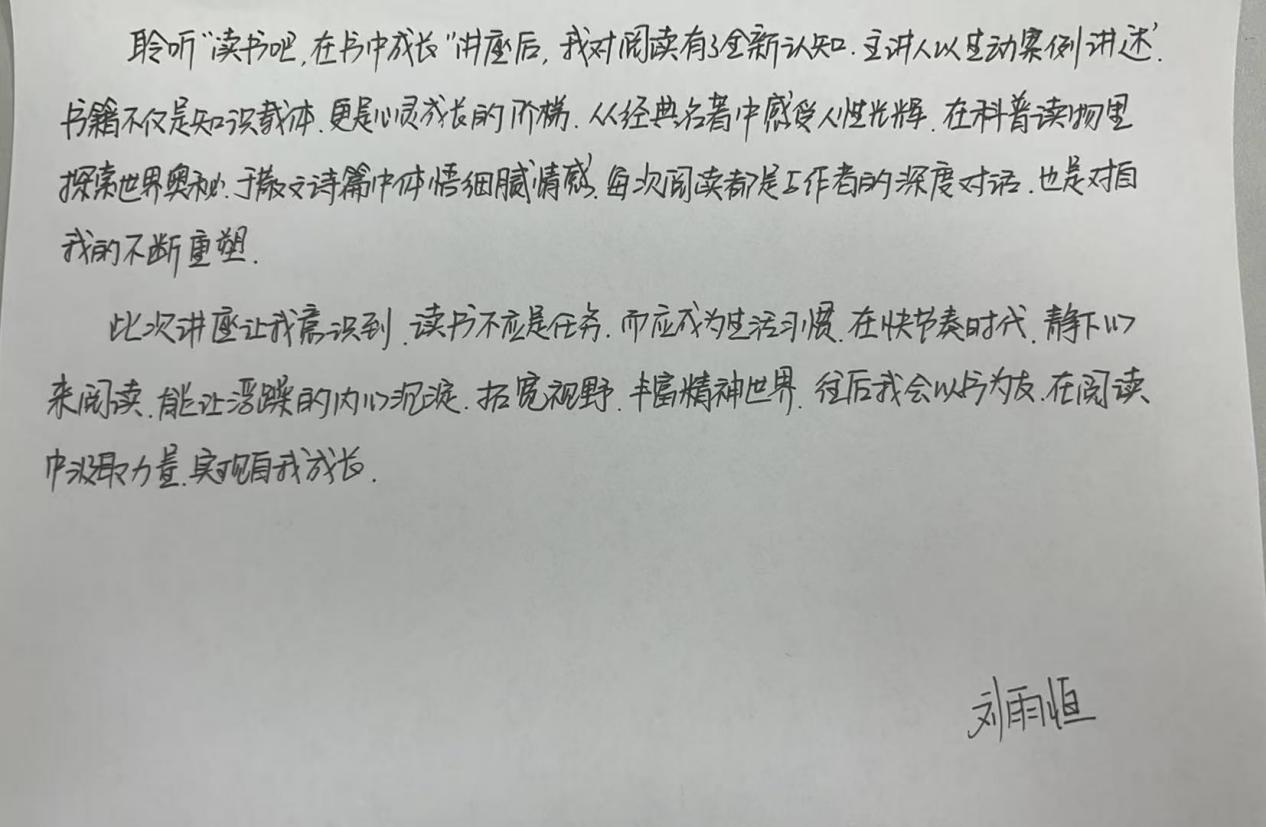 聆听“读书吧,在书中成长”讲座后,我对阅读有了全新认知.主讲人以生动案例讲述,
书籍不仅是知识载体.更是心灵成长的阶梯.从经典名著中感受人性光辉.在科普读物里
探索世界奥秘.于散文诗篇中体悟细腻情感,每次阅读都是与作者的深度对话.也是对自
我的不断重塑.
此次讲座让我意识到.读书不应是任务.而应成为生活习惯.在快节奏时代.静下心
来阅读.能让浮躁的内心沉淀.拓宽视野.丰富精神世界.往后我会以书为友.在阅读
中汲取力量.实现自我成长.
刘雨恒